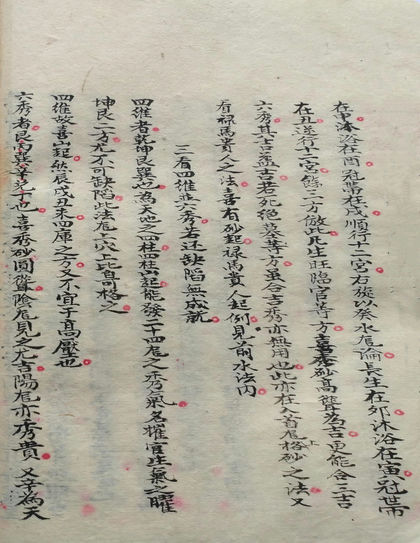 在申沐浴在酉冠帶在戌順行十二宮右旋以癸水尾論長生在卯沐浴在寅冠帶
在丑逆行十二宮餘二方倣此凡生旺臨官等方喜秀砂高聳為吉更能合三吉
六秀其吉益吉若死絕衰等方虽合吉秀亦無用也此亦在入首尾上格砂之法又
看祿馬貴人之法喜有砂起祿馬貴人起例見前水法内
三看四維並六秀若还缺陷無成就
四維者乾坤艮巽也為天地之柱四柱若起能發二十四尾之秀氣名權官生氣之曜
坤艮二方尤不可缺陷此法尾穴上皆可格之
四維故喜山起然辰戌丑未四庫之方又不宜于高壓也
六秀者艮丙巽辛兌丁也喜秀砂圓聳陰尾見之尤吉陽尾亦秀貴又辛為天